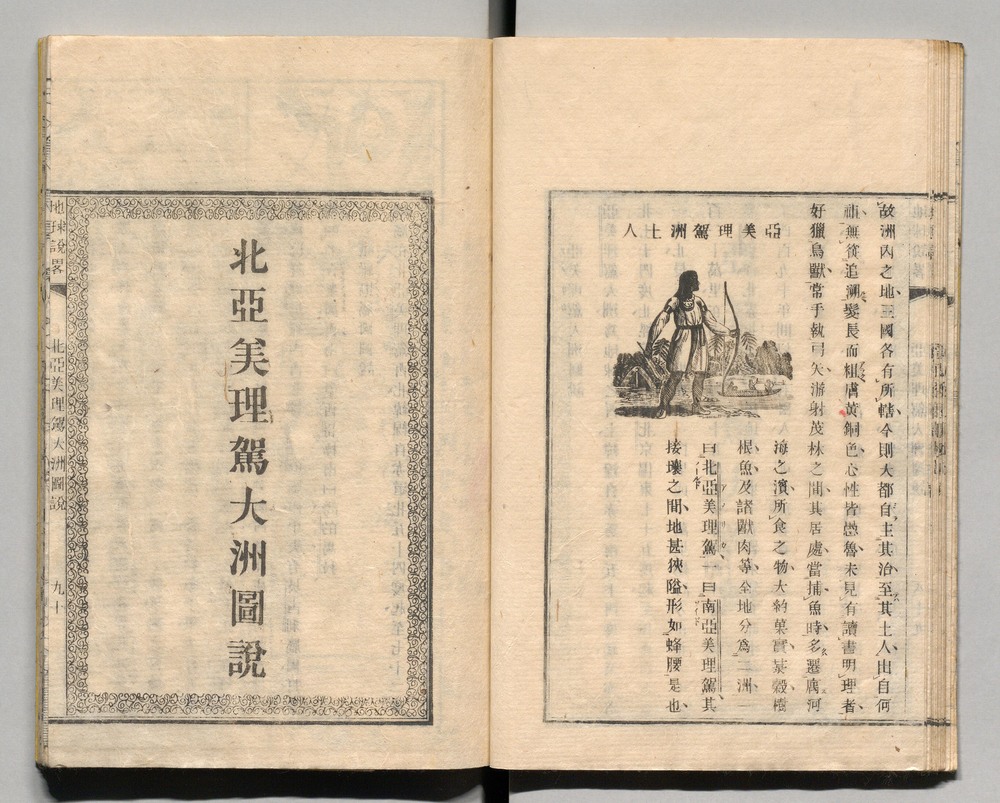 故洲內之地三國各有所轄今則大都自主其治至其土人出自何
種無從追溯髮長而粗膚黃銅色心性皆愚魯未見有讀書明理者
好獵鳥獸常手執弓矢游射茂林之間其居處當捕魚時多遷寓河
亞美理駕洲土人
海之濱所食之物大約菓實菜穀樹
根魚及諸獸肉等全地分爲二洲一
曰北亞美理駕一曰南亞美理駕其
接壤之間地甚狹隘形如蜂腰是也
北亞美理駕大洲圖說
地球說畧
北亞美理駕大洲圖說
九十